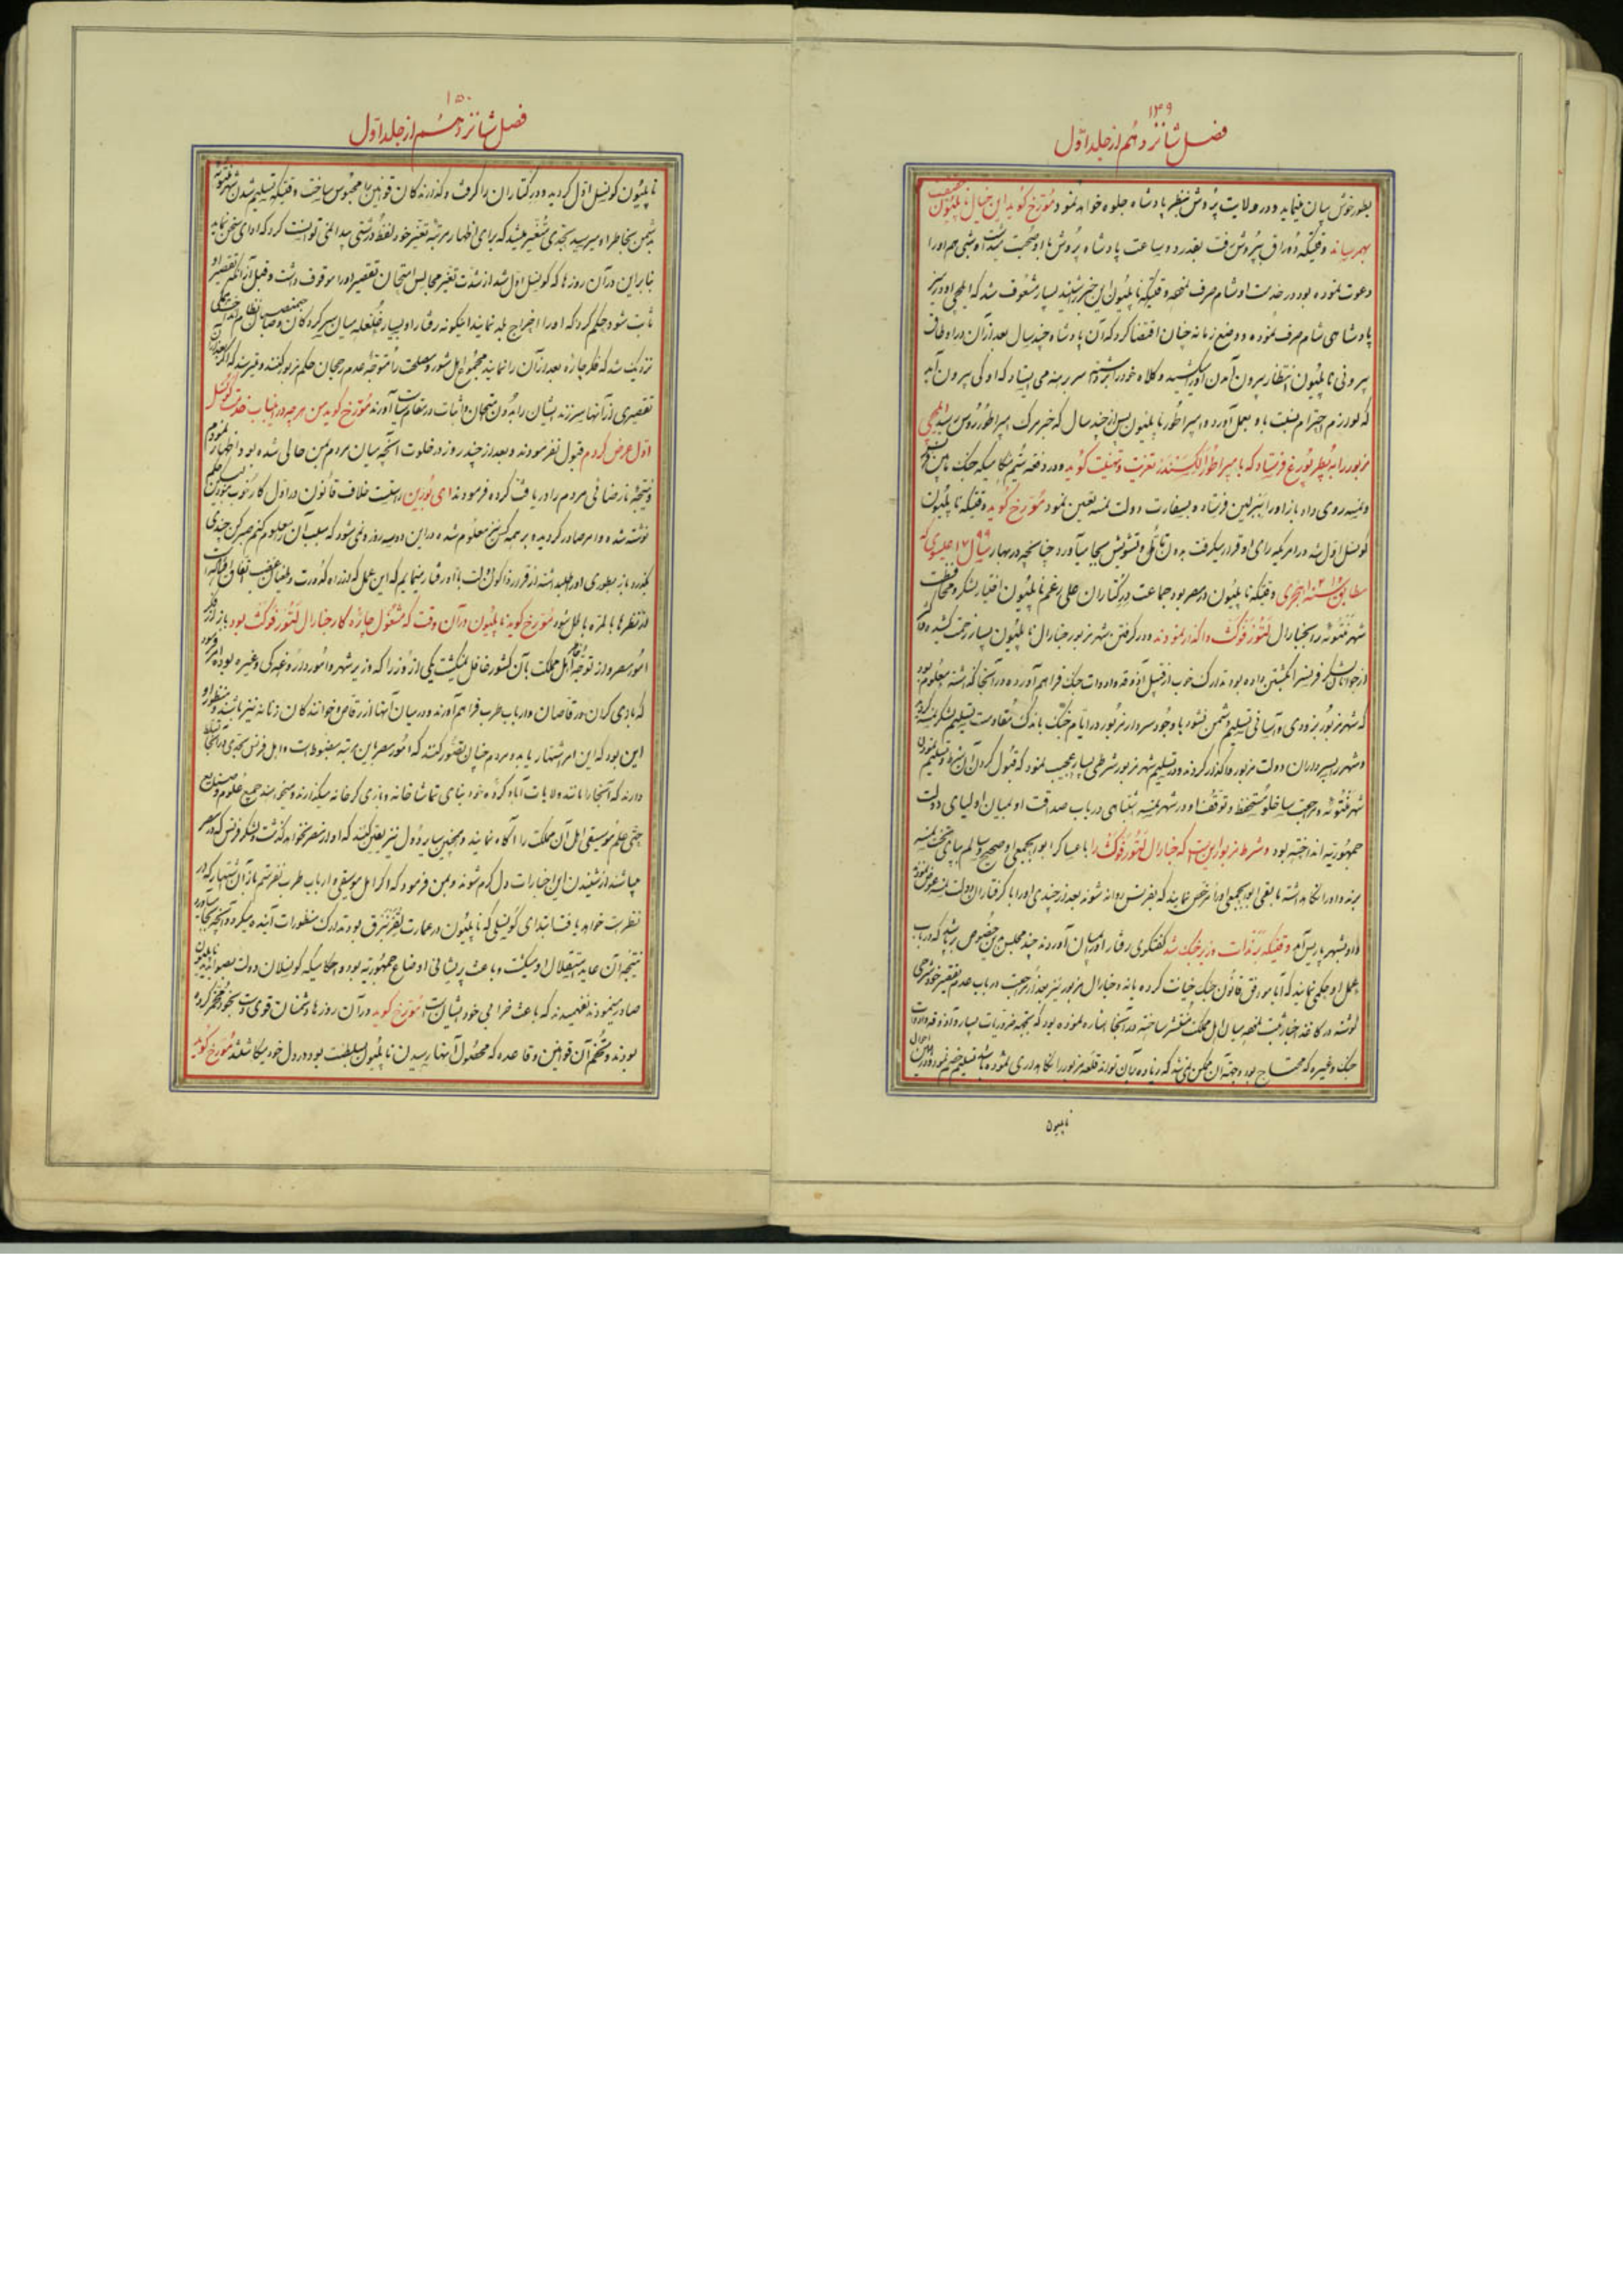 ۱۴۹
فصل شانزدهم از جلد اوّل
بطور خوش بیان مینماید و در ولایت پروش منظر پادشاه جلوه خواهد نمود مؤرخ گوید این خیال ناپلیون
بهم رساند وقتیکه دوراق بپروش رفت بقدر دو ساعت پادشاه پروش با او صحبت داشت و شبی هم او را
دعوت نموده بود در خدمت او شام صرف نمود وقتیکه ناپلیون این خبر شنید بسیار مشعوف شد که ایلچی او در میز
پادشاهی شام صرف نموده و وضع زمانه چنان اقتضا کرد که آن پادشاه چند سال بعد از آن در اوطاق
بیرونی ناپلیون انتظار بیرون آمدن او را میکشید و کلاه خود را برداشته سر برهنه می ایستاد که او کی بیرون آید
که لوازم احترام نسبت باو بعمل آورد و امپراطور ناپلیون پس از چند سال که خبر مرگ امپراطور روس رسید ایلچی
مزبور را به پطرپورغ فرستاد که با امپراطور الکسندر تعزیت و تهنیت گوید و در دفعه ششم هنگامیکه جنگ مابین فرانسه
و نمسه روی داد باز او را ببرلین فرستاد و بسفارت دولت نمسه تعیین نمود مؤرخ گوید وقتیکه ناپلیون
کونسل اوّل شد در امریکه رای او قرار میگرفت بدون تأمّل و تشویش بجا میآورد چنانچه در بهار سال ۱۷۹۹ عیسوی که
مطابق سنه ۱۲۱۴ هجری وقتیکه ناپلیون در مصر بود جماعت دیرکتاران علی رغم ناپلیون اختیار لشکر و محافظت
شهر منتوئه را بجنارال لتورفوکث واگذار نمودند و در گرفتن شهر مزبور جنارال ناپلیون بسیار زحمت کشیده
از جوانان لشکر فرانسه را بکشتن داده بود تدارک خوب از قبیل آذوقه و ادوات جنگ فراهم آورده در آنجا گذاشته معلوم بود
که شهر مزبور بزودی و آسانی تسلیم دشمن نشود با وجود سردار مزبور در ایام جنگ باندک مقاومت تسلیم لشکر نمسه کرد
و شهر را بسرداران دولت مزبور واگذار کردند و در تسلیم شهر مزبور شرطی بسیار عجیب نمود که قبول کردن آن و تسلیم نمودن
شهر منتوئه و مراجعت ساخلو مستحفظ و توقف او در شهر نمسه اشتباهی در باب صداقت او بمیان اولیای دولت
جمهوریه انداخته بود و شرط مزبور این است که جنارال لتورفوکث را با عساکر ابوابجمعی او صحیح و سالم بپای تخت نمسه
برند و او را نگاهداشته مابقی ابوابجمعی او را مرخص نمایند که بفرانس روانه شوند بعد از چندی او را با گرفتاران دولت نمسه عوض نموده
داد و بشهر پاریس آمد وقتیکه برنذات وزیر جنگ شد گفتگوی رفتار او را بمیان آوردند چند مجلس در این خصوص برپا شد که در باب
عمل او حکمی نمایند که آیا موافق قانون جنگ خیانت کرده یا نه و جنارال مزبور نیز بعد از مراجعت در باب عدم تقصیر خود شرحی
نوشته در کاغذ اخبار ثبت نموده میان اهل مملکت منتشر ساخته در آنجا اشاره نموده بود که بجهة ضروریات بسیار و آذوقه و ادوات
جنگ و غیره که محتاج بود و جهت آن ممکن نمی شد که زیاده بر آن تواند قلعه مزبور را نگاهداری نموده باشد تسلیم خصم نمود و در این احوال
ناپلیون
۱۵۰
فصل شانزدهم از جلد اوّل
ناپلیون کونسل اوّل گردید و دیرکتاران را گرفت و گذرانندگان قوانین را محبوس ساخت وقتیکه تسلیم شدن شهر منتوئه
بدشمن بخاطر او میرسید بحدی متغیر میشد که برای اظهار مرتبه تغیر خود لفظ درشتی پیدا نمی توانست کرد که ادای سخن نماید
بنابراین در آن روزها که کونسل اوّل شد از شدت تغیر مجالس امتحان تقصیر او را موقوف داشت و قبل از آنکه تقصیر او
ثابت شود حکم کرد که او را اخراج بلد نمایند اینگونه رفتار او بسیار غلغله میان سرکردگان و صاحبمنصبان نظام انداخت
نزدیک شد که فکر چاره بعد از آن را نمایند مجموع اهل شور و مصلحت را متوجه عدم رجحان حکم مزبور کنند و میترسند که اگر بعد از این
تقصیری از آنها سر زند ایشان را بدون امتحان و اثبات در مقام سیاست آورند مؤرخ گوید من هر چه در این باب خدمت کونسل
اوّل عرض کردم قبول نفرمودند و بعد از چند روز در خلوت آنچه میان مردم بمن حالی شده بود اظهار نمودم
و نتیجه نارضائی مردم را دریافت کرده فرمودند ای بورین راست است خلاف قانون در اوّل کار خوب نبود لیکن حکم
نوشته شده و امر صادر گردید و بر همه کس نیز معلوم شده در این دو سه روزه نمی شود که سبب آن را معلوم کنم صبر کن چندی
بگذرد باز بطوری او را طلب داشته از قرار ذاکونالت با او رفتار مینمایم که این عمل که از راه کدورت و طغیان غضب اتفاق افتاده است
از نظرها بالمره باطل شود مؤرخ گوید ناپلیون در آن وقت که مشغول چاره کار جنارال لتورفوکث بود باز از فکر
امور مصر و از توجه اهل مملکت بآن کشور غافل نمیگشت یکی از وزرا که وزیر شهر و امور داروغه کی و غیره بود امر فرمود
که بازی کران و رقاصان و ارباب طرب فراهم آورند و در میان آنها از رقاص و خوانندگان زنانه نیز باشند و منظور او
این بود که این امر اشتهار یابد و مردم چنان تصور کنند که امور مصر باین مرتبه مضبوط است و اهل فرانس بحدی در آنجا تسلط
دارند که آنجا را مانند ولایات آباد کرده خود بنای تماشاخانه و بازی کرخانه میگذارند و میخواهند جمیع علوم و صنایع
حتی علم موسیقی اهل آن مملکت را آگاه نمایند و همچنین سایر دول نیز یقین کنند که او از مصر نخواهد گذشت و لشکر فرانس که در مصر
میباشند از شنیدن این اخبارات دل گرم شوند و بمن فرمود که اگر اهل موسیقی و ارباب طرب نفرستم باز آن اشتهار که در
نظر است خواهد یافت ابتدای کونسلی که ناپلیون در عمارت لقزنبرق بود تدارک منظورات آینده میکرد و آنچه بجا میآورد
نتیجه آن عاید استقلال او میگشت و باعث پریشانی اوضاع جمهوریه بود و احکامیکه کونسلان دولت بصوابدید ناپلیون
صادر مینمودند نفهمیدند که باعث خرابی خود ایشان است مؤرخ گوید در آن روزها دشمنان قوی دست بخود مغرور کرده
بودند و تخم آن قوانین و قاعده که محصول آنها رسیدن ناپلیون بسلطنت بود در دل خود میکاشتند مؤرخ گوید